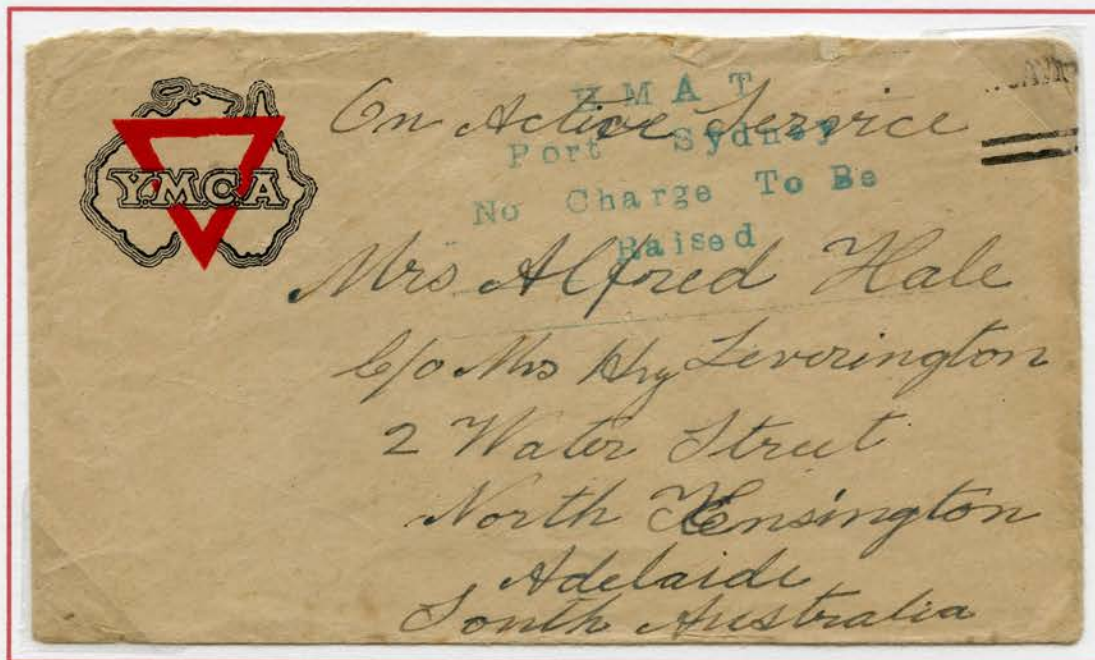 YMCA
On Active Service
H M A T
Port Sydney
No Charge To Be
Raised
Mrs Alfred Hale
C/o Mrs Hry Leverington
2 Water Street
North Kensington
Adelaide
South Australia